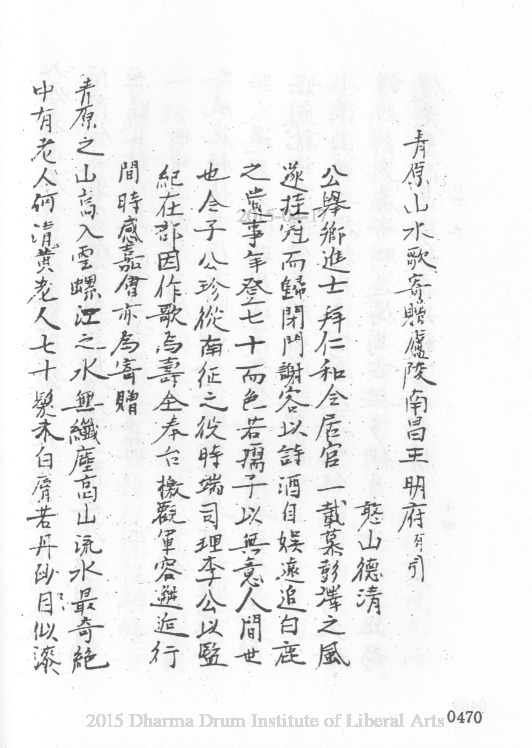 青原山水歌寄贈廬陵南昌王明府有引
憨山德清
公舉鄉進士拜仁和令居官一載慕彭澤之風
遂挂冠而歸閉門謝客以詩酒自娛遠追白鹿
之事年登七十而色若孺子以無意人間世
也令子公珍從南征之役時端司理李公以監
紀在郡因作歌為壽全奉台檄觀軍容邂逅行
間時感嘉會亦為寄贈
青原之山高入雲螺江之水無纖塵高山流水最奇絕
中有老人何清黃老人七十髮未白膚若丹砂目似漆
2015 Dharma Drum Institute of Liberal Arts
0470